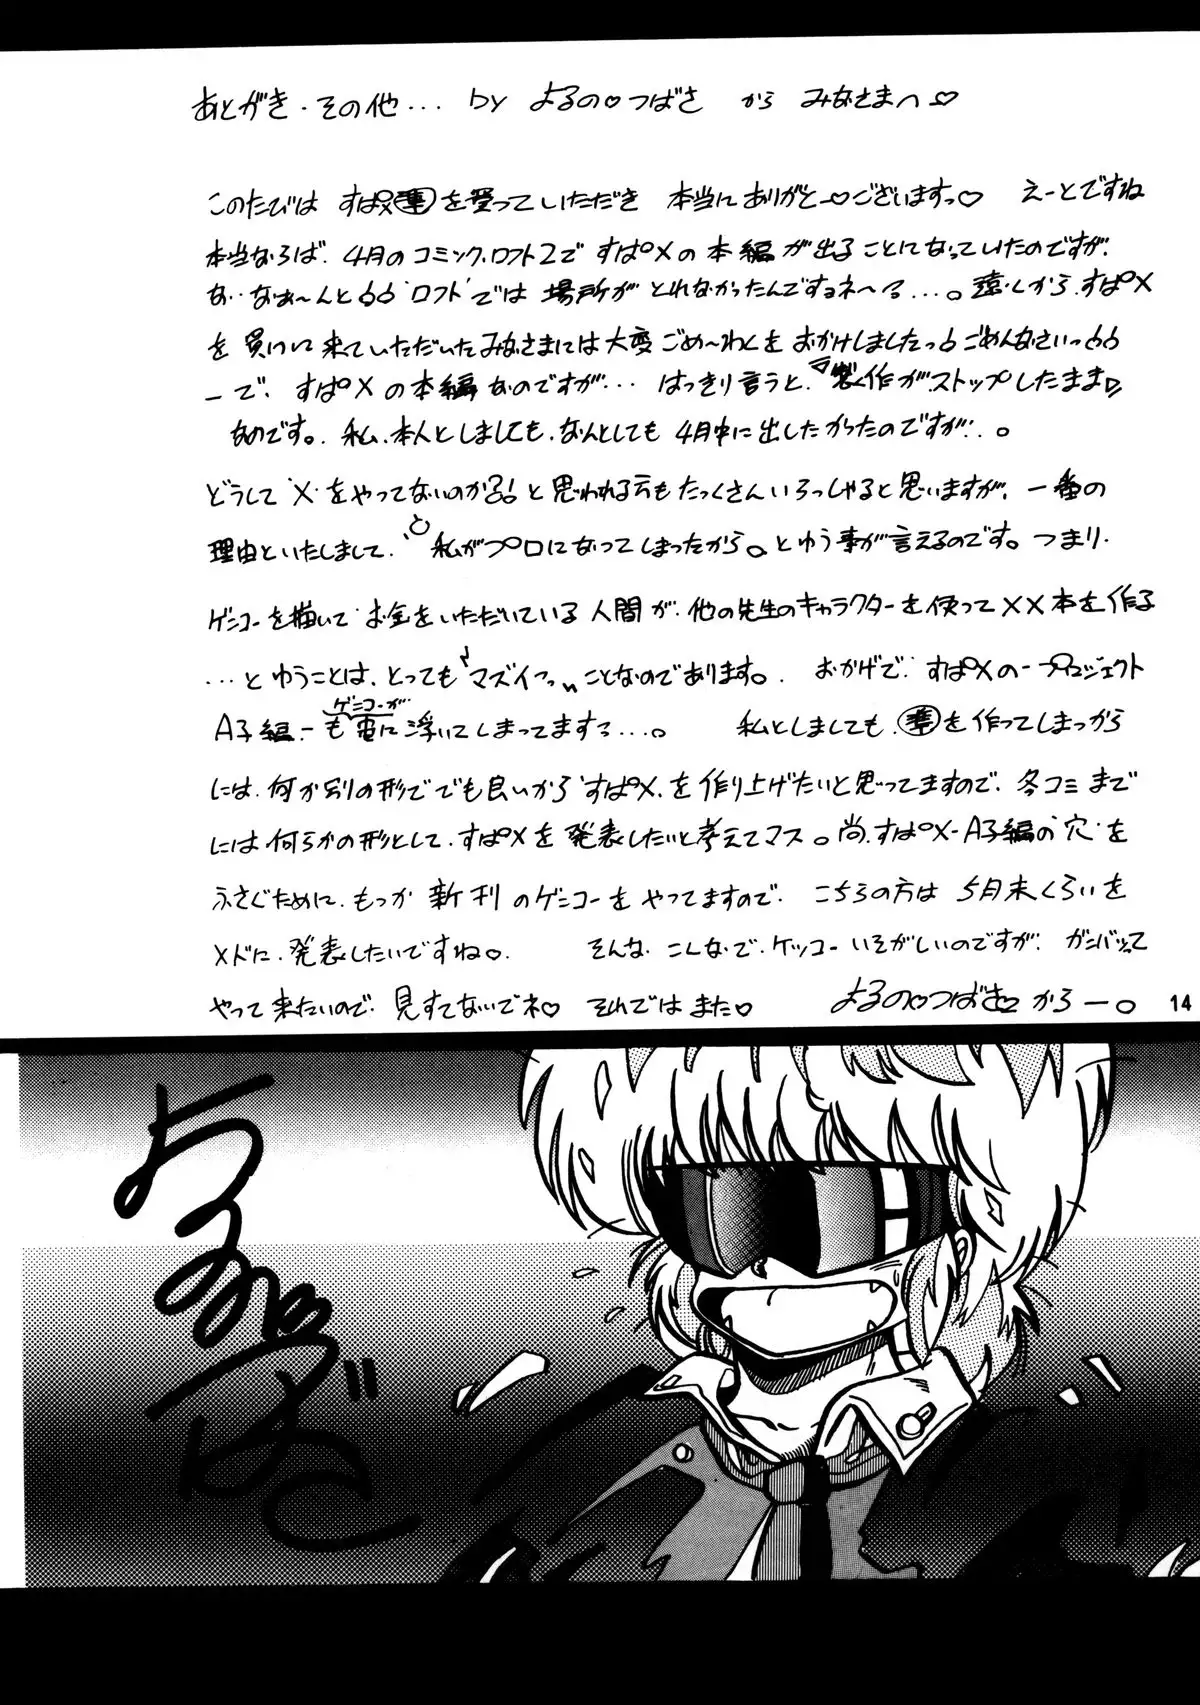 あとがき・その他... by よるの♡つばさ から みなさまへ♡
このたびは すぱX㊥を買っていただき 本当にありがと〜♡ございますっ♡ えーとですね
本当ならば、4月のコミック・ロフト2で すぱ°Xの本編が出ることになっていたのですが、
な…なぁ〜んと 'ロフト'では 場所が とれなかったんですョネ〜る...。遠くから、すぱ°X
を 買いに 来ていただいたみなさまには 大変 ごめ〜わくを おかけしましたっ ごめんなさいっ
ーで、すぱ°Xの本編なのですが... はっきり言うと、製作がストップしたまま
なのです。私、本人としましても、なんとしても 4月中に出したかったのですが...。
どうして 'X' をやってないのか?! と思われる方もたっくさんいらっしゃると思いますが、一番の
理由といたしまして、"私がプロになってしまったから。とゆう事が言えるのです。つまり、
ゲンコーを描いて お金をいただいている人間が、他の先生のキャラクターを使って××本を作る
...とゆうことは、とっても "マズイっ" ことなのであります。おかげで、すぱ°Xの一プロジェクト
A子編ーもゲンコーが宙に浮いてしまってますっ...。 私としましても、を作ってしまっから
には、何か別の形ででも良いから 'すぱ°X' を作り上げたいと思ってますので、冬コミまで
には何らかの形として、すぱ°Xを発表したいと考えてマス。尚、すぱ°X-A子編の'穴'を
ふさぐために、もっか 新刊のゲンコーをやってますので、こちらの方は 5月末くらいを
メドに、発表したいですね。 そんな こんなで、ケッコー いそがしいのですが、ガンバッて
やって来たいので、見すてないでネ♡ それでは また♡ よるの♡つばさ から ー。 14
よるのつばさ